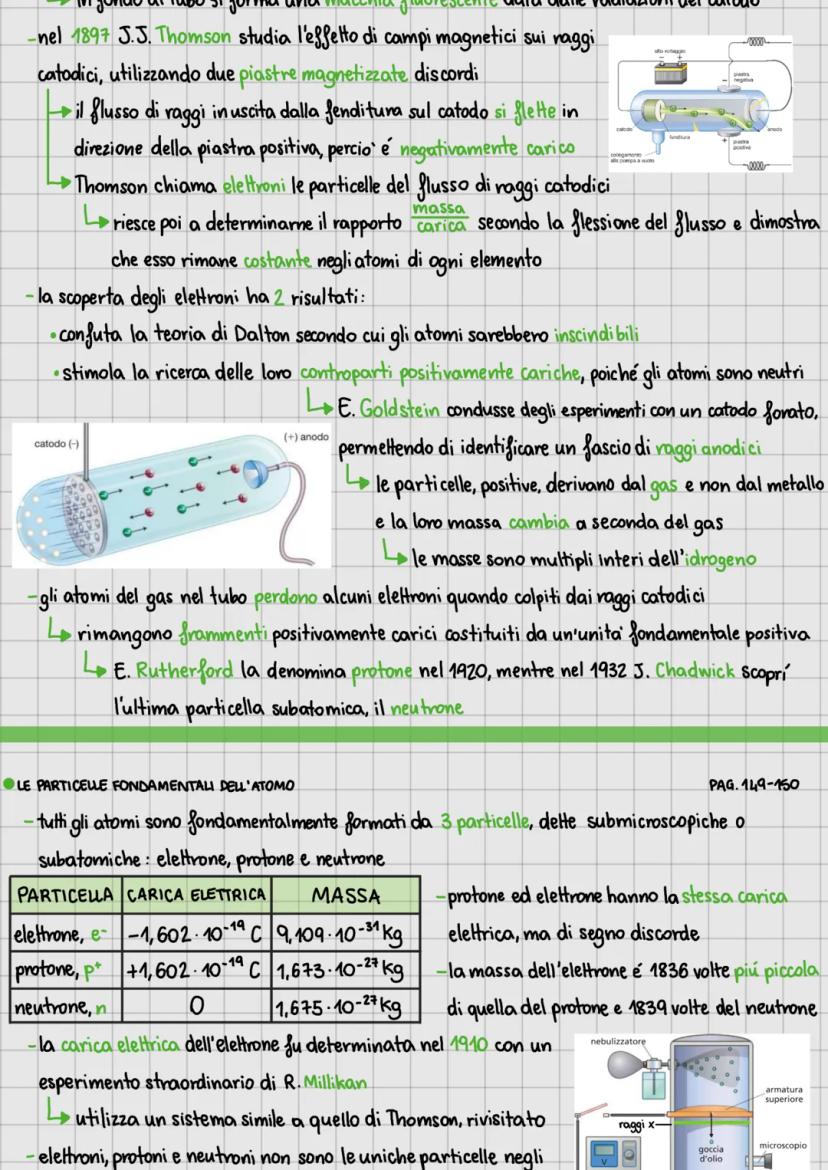 in fondo al tubo si forma una macchia fluorescente data dalle radiazioni del catodo
-nel 1897 J.J. Thomson studia l'effetto di campi magnetici sui raggi
catodici, utilizzando due piastre magnetizzate discordi
il flusso di raggi in uscita dalla fenditura sul catodo si flette in
direzione della piastra positiva, percio' é negativamente carico
alto voltaggio
- +
piastra
negativa
catodo
fenditura
anodo
collegamento
alla pompa a vuoto
piastra
positiva
Thomson chiama elettroni le particelle del flusso di raggi catodici
riesce poi a determinarne il rapporto massa/carica secondo la flessione del flusso e dimostra
che esso rimane costante negli atomi di ogni elemento
-la scoperta degli elettroni ha 2 risultati:
•confuta la teoria di Dalton secondo cui gli atomi sarebbero inscindibili
•stimola la ricerca delle loro controparti positivamente cariche, poiché gli atomi sono neutri
E. Goldstein condusse degli esperimenti con un catodo forato,
permettendo di identificare un fascio di raggi anodici
le particelle, positive, derivano dal gas e non dal metallo
e la loro massa cambia a seconda del gas
le masse sono multipli interi dell'idrogeno
catodo (-)
(+) anodo
-gli atomi del gas nel tubo perdono alcuni elettroni quando colpiti dai raggi catodici
rimangono frammenti positivamente carici costituiti da un'unita' fondamentale positiva
E. Rutherford la denomina protone nel 1920, mentre nel 1932 J. Chadwick scoprí
l'ultima particella subatomica, il neutrone
•LE PARTICELLE FONDAMENTALI DELL'ATOMO PAG. 149-150
-tutti gli atomi sono fondamentalmente formati da 3 particelle, dette submicroscopiche o
subatomiche: elettrone, protone e neutrone
PARTICELLA CARICA ELETTRICA MASSA
elettrone, e⁻ -1,602·10⁻¹⁹ C 9,109·10⁻³¹ kg
protone, p⁺ +1,602·10⁻¹⁹ C 1,673·10⁻²⁷ kg
neutrone, n 0 1,675·10⁻²⁷ kg
-protone ed elettrone hanno la stessa carica
elettrica, ma di segno discorde
-la massa dell'elettrone é 1836 volte piú piccola
di quella del protone e 1839 volte del neutrone
-la carica elettrica dell'elettrone fu determinata nel 1910 con un
esperimento straordinario di R. Millikan
utilizza un sistema simile a quello di Thomson, rivisitato
-elettroni, protoni e neutroni non sono le uniche particelle negli
nebulizzatore
armatura
superiore
raggi x
goccia
d'olio
microscopio
V